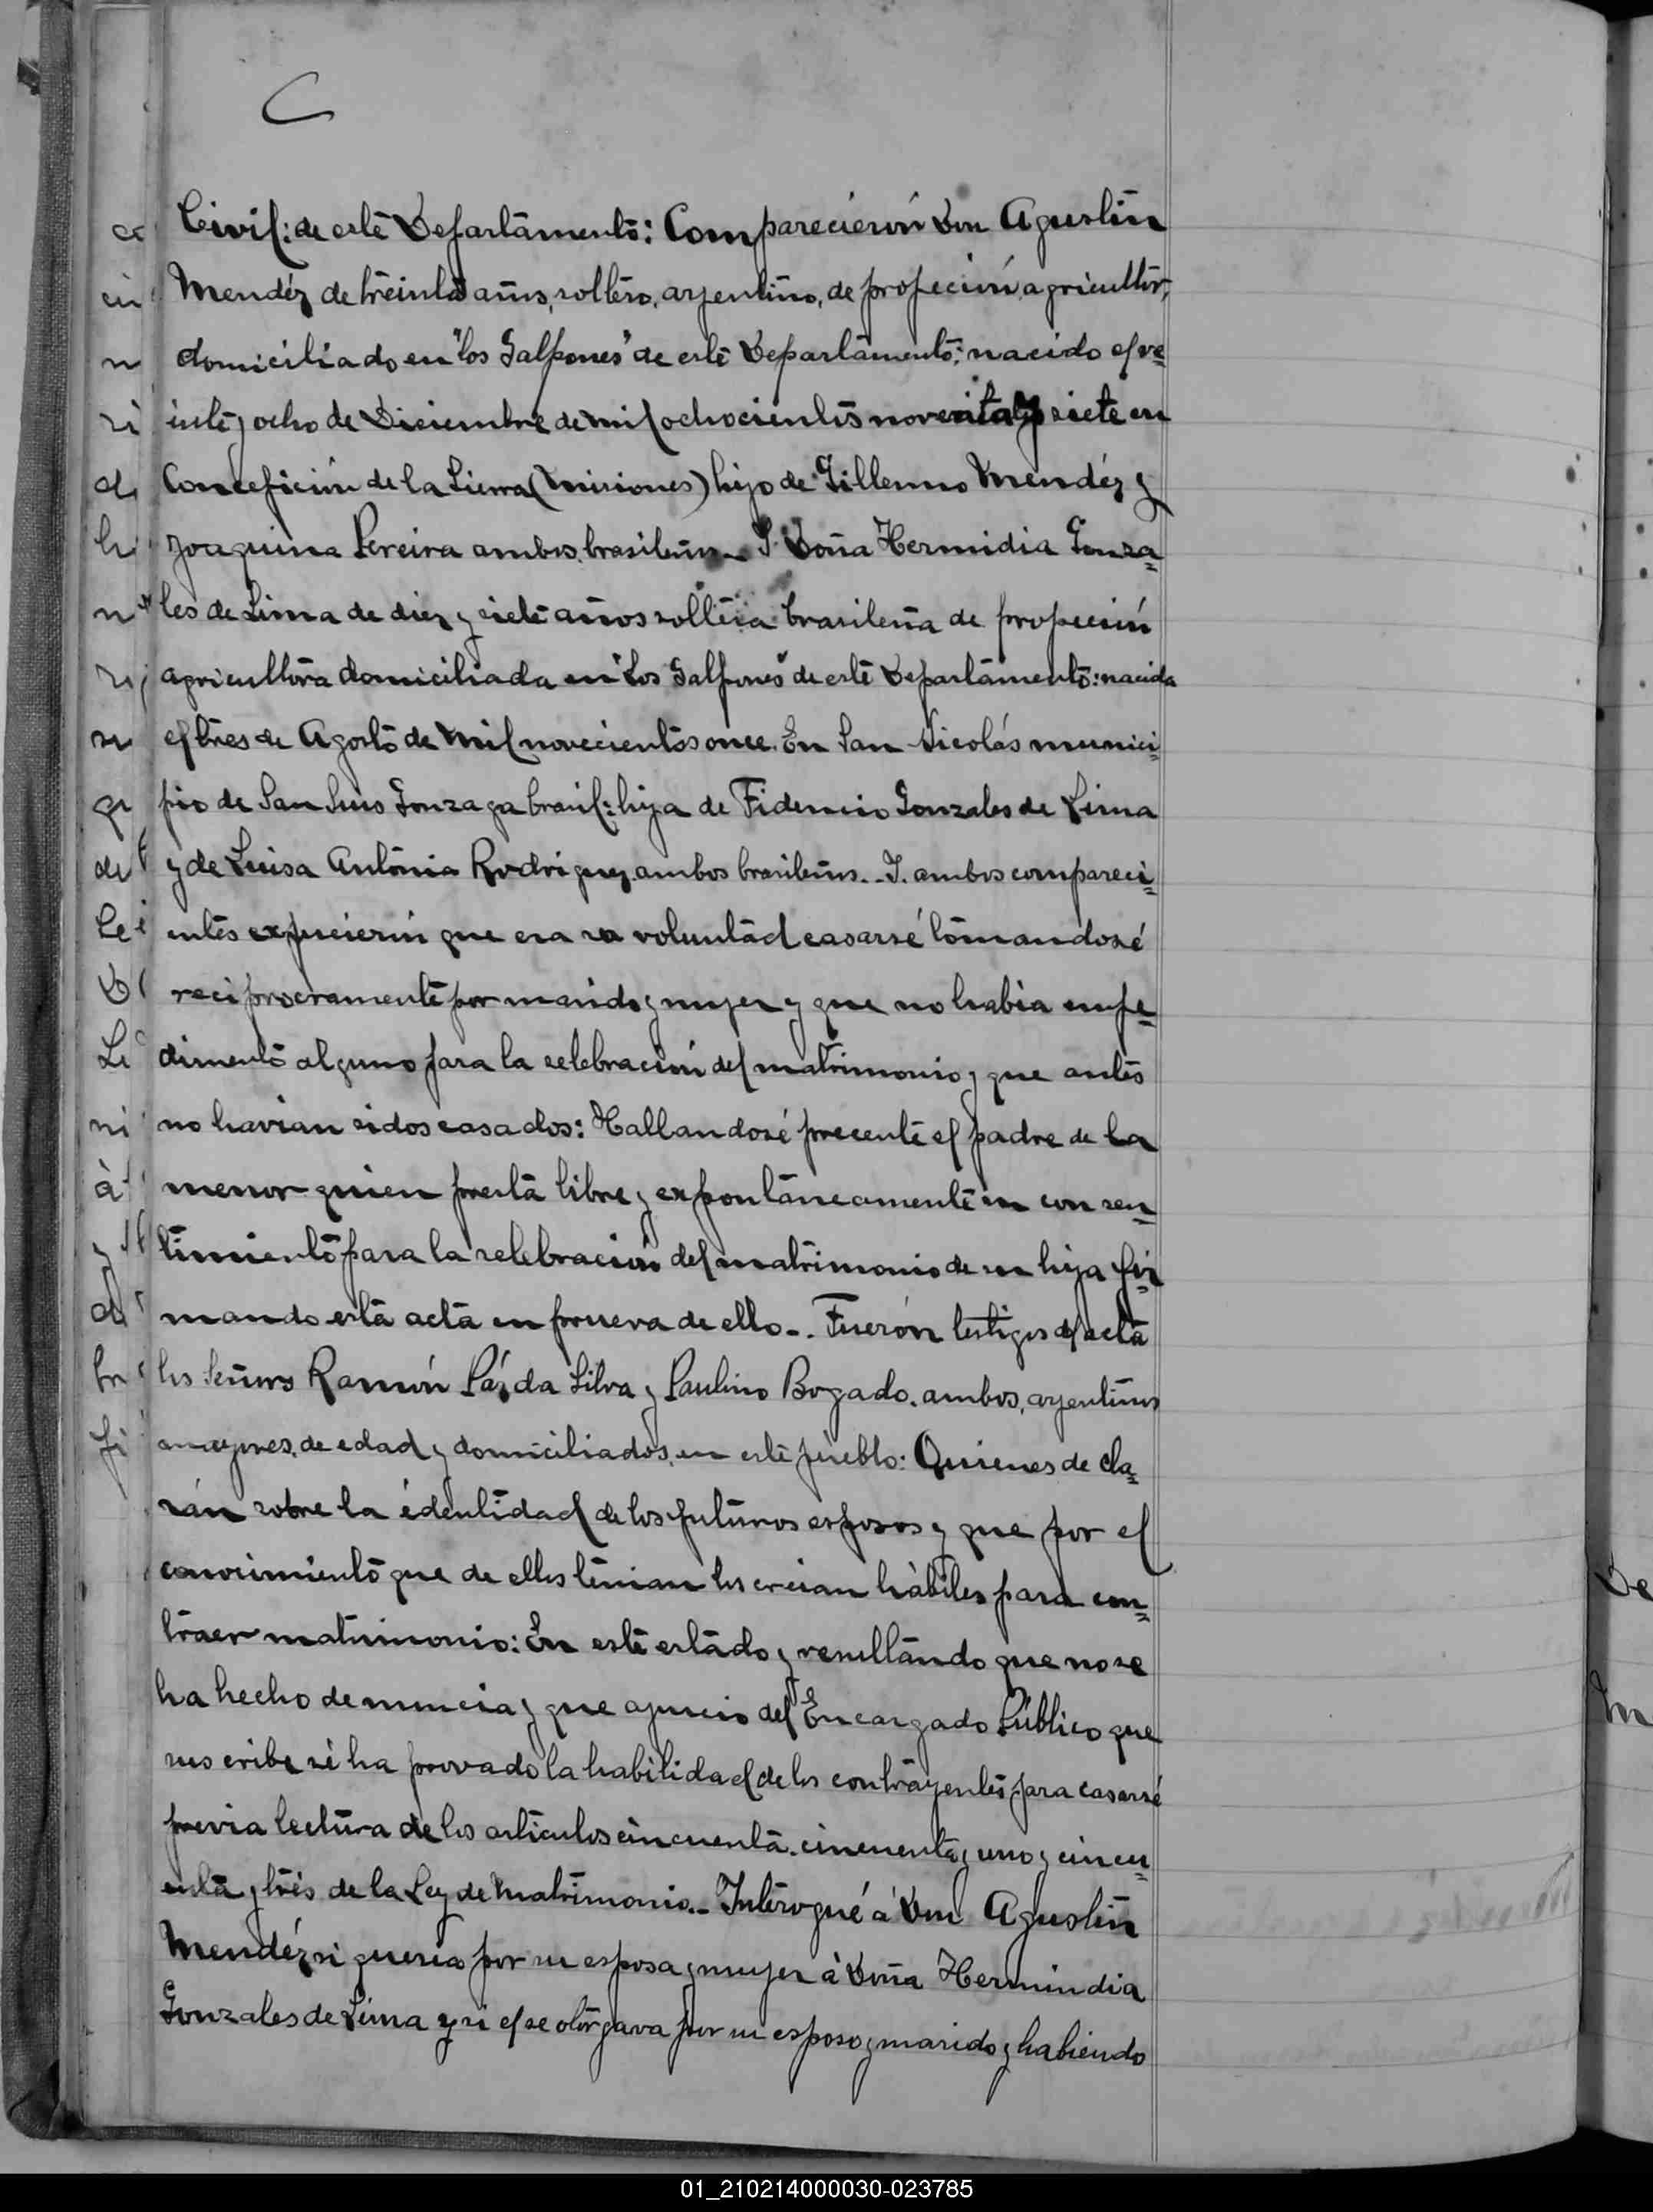 C
Civil: de este Departamento: Comparecierón Don Agustin
Mendéz de treinta años, soltero, argentino, de profeción agricultor,
domiciliado en "los Galpones" de este Departamento: nacido el ve=
inte y ocho de Diciembre de mil ochocientos noventa y siete en
Concepción de la Sierra (Misiones) hijo de Gillermo Mendéz y
Joaquina Pereira ambos brasileños.- Y Doña Hermidia Gonza=
les de Lima de diez y siete años soltera brasileña de profeción
agricultora domiciliada en "Los Galpones" de este Departamento: nacida
el tres de Agosto de Mil novecientos once. En San Nicolás munici=
pio de San Luis Gonzaga brasil: hija de Fidencio Gonzales de Lima
y de Luisa Antonia Rodriguez ambos brasileños.- Y. ambos compareci=
entes expucierón que era su voluntad casarsé tomandosé
reciprocramente por marido y mujer y que no habia empe=
dimento alguno para la selebración del matrimonio y que antes
no havian sidos casados: Hallandosé precente el padre de la
menor quien presta libre y expontaneamente su con sen=
timiento para la selebración del matrimonio de su hija fir=
mando esta acta en prueva de ello.-. Fuerón testigos del acta
los Señores Ramón Páz da Silva y Paulino Bogado. ambos, argentinos
mayores, de edad y domiciliados, en este pueblo: Quienes de cla=
rán sobre la édentidad de los futuros esposos y que por el
conocimiento que de ellos tenian los creian hàbiles para con=
traer matrimonio: En este estado y resultando que no se
ha hecho denuncia y que ajuicio del Encargado Público que
suscribe sé ha provado la habilidad de los contrayentes para casarsé
previa lectura de los articulos cincuenta. cincuenta y uno y cincu=
enta y trés de la Ley de Matrimonio.- Interogué à Don Agustin
Mendéz si queria por su esposa y mujer à Doña Hermindia
Gonzales de Lima y si el se otorgava por su esposo y marido y habiendo
01_210214000030-023785